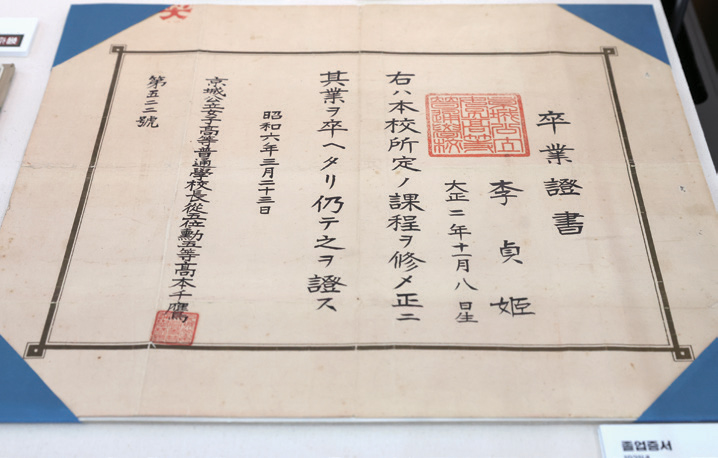 卒業證書
李貞姬
大正二年十一月八日生
右ハ本校所定ノ課程ヲ修メ正ニ
其業ヲ卒ヘタリ仍テ之ヲ證ス
昭和六年三月二十三日
京城公立女子高等普通學校長從五位勳五等高本千鷹
第五二二號
졸업증서